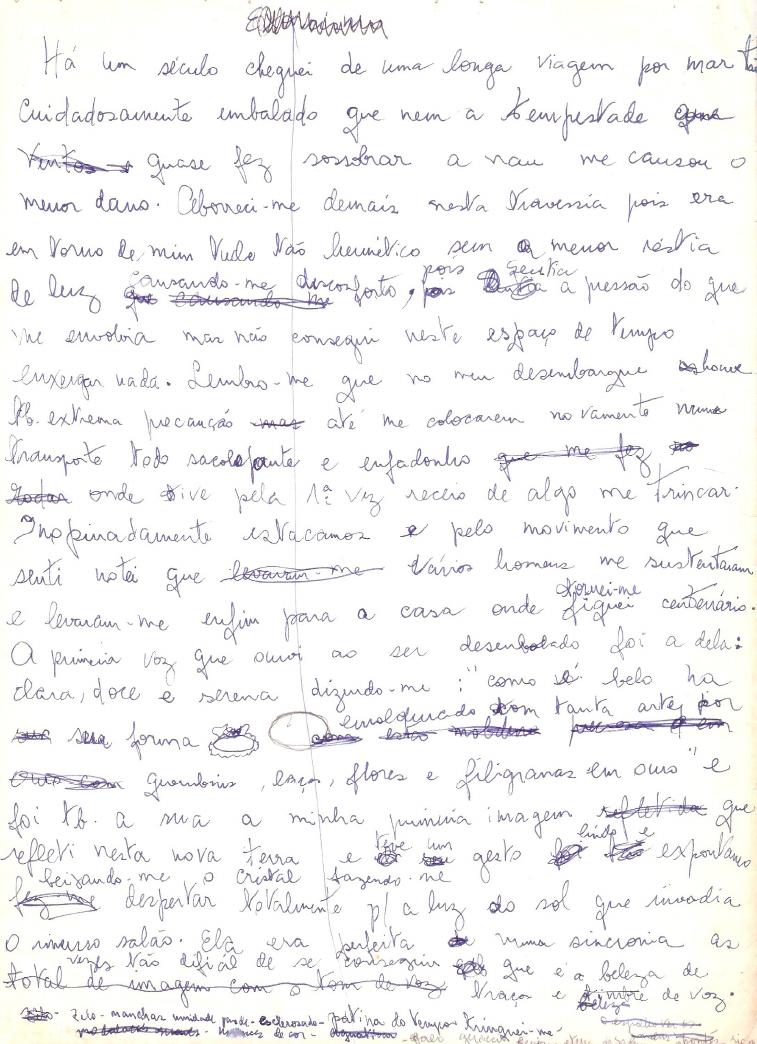 Há um século cheguei de uma longa viagem por mar
cuidadosamente embalado que nem a tempestade que
ventos quase fez sossobrar a nau me causou o
menor dano. Aborreci-me demais nesta travessia pois era
em torno de mim tudo tão hermético sem a menor réstia
causando-me pois sentia
de luz que causando me disconforto, a pressão do que
me envolvia mas não consegui neste espaço de tempo
enxergar nada. Lembro-me que no meu desembarque houve
tb. extrema precaução mas até me colocarem novamente num
transporte todo sacolejante e enfadonho que me fez
onde tive pela 1ª vez receio de algo me trincar.
Inopinadamente estacamos e pelo movimento que
senti notei que levaram-me vários homens me sustentaram
tornei-me
e levaram-me enfim para a casa onde fiquei centenário.
A primeira voz que ouvi ao ser desembalado foi a dela:
clara, doce e serena dizendo-me: "como é belo na
emoldurado com tanta arte por
sua forma
querubins, laços, flores e filigranas em ouro" e
foi tb. a sua a minha primeira imagem refletida que
teve um lindo e
refleti nesta nova terra e gesto expontâneo
beijando-me o cristal fazendo-me
fez me despertar totalmente p/ a luz do sol que invadia
o imenso salão. Ela era perfeita numa sincronia as
vezes tão difícil de se conseguir que é a beleza de
total de imagem com o tom de voz traço e timbre de voz.
beleza
manchas umidade esclerosado - patina do tempo - Trinquei-me -